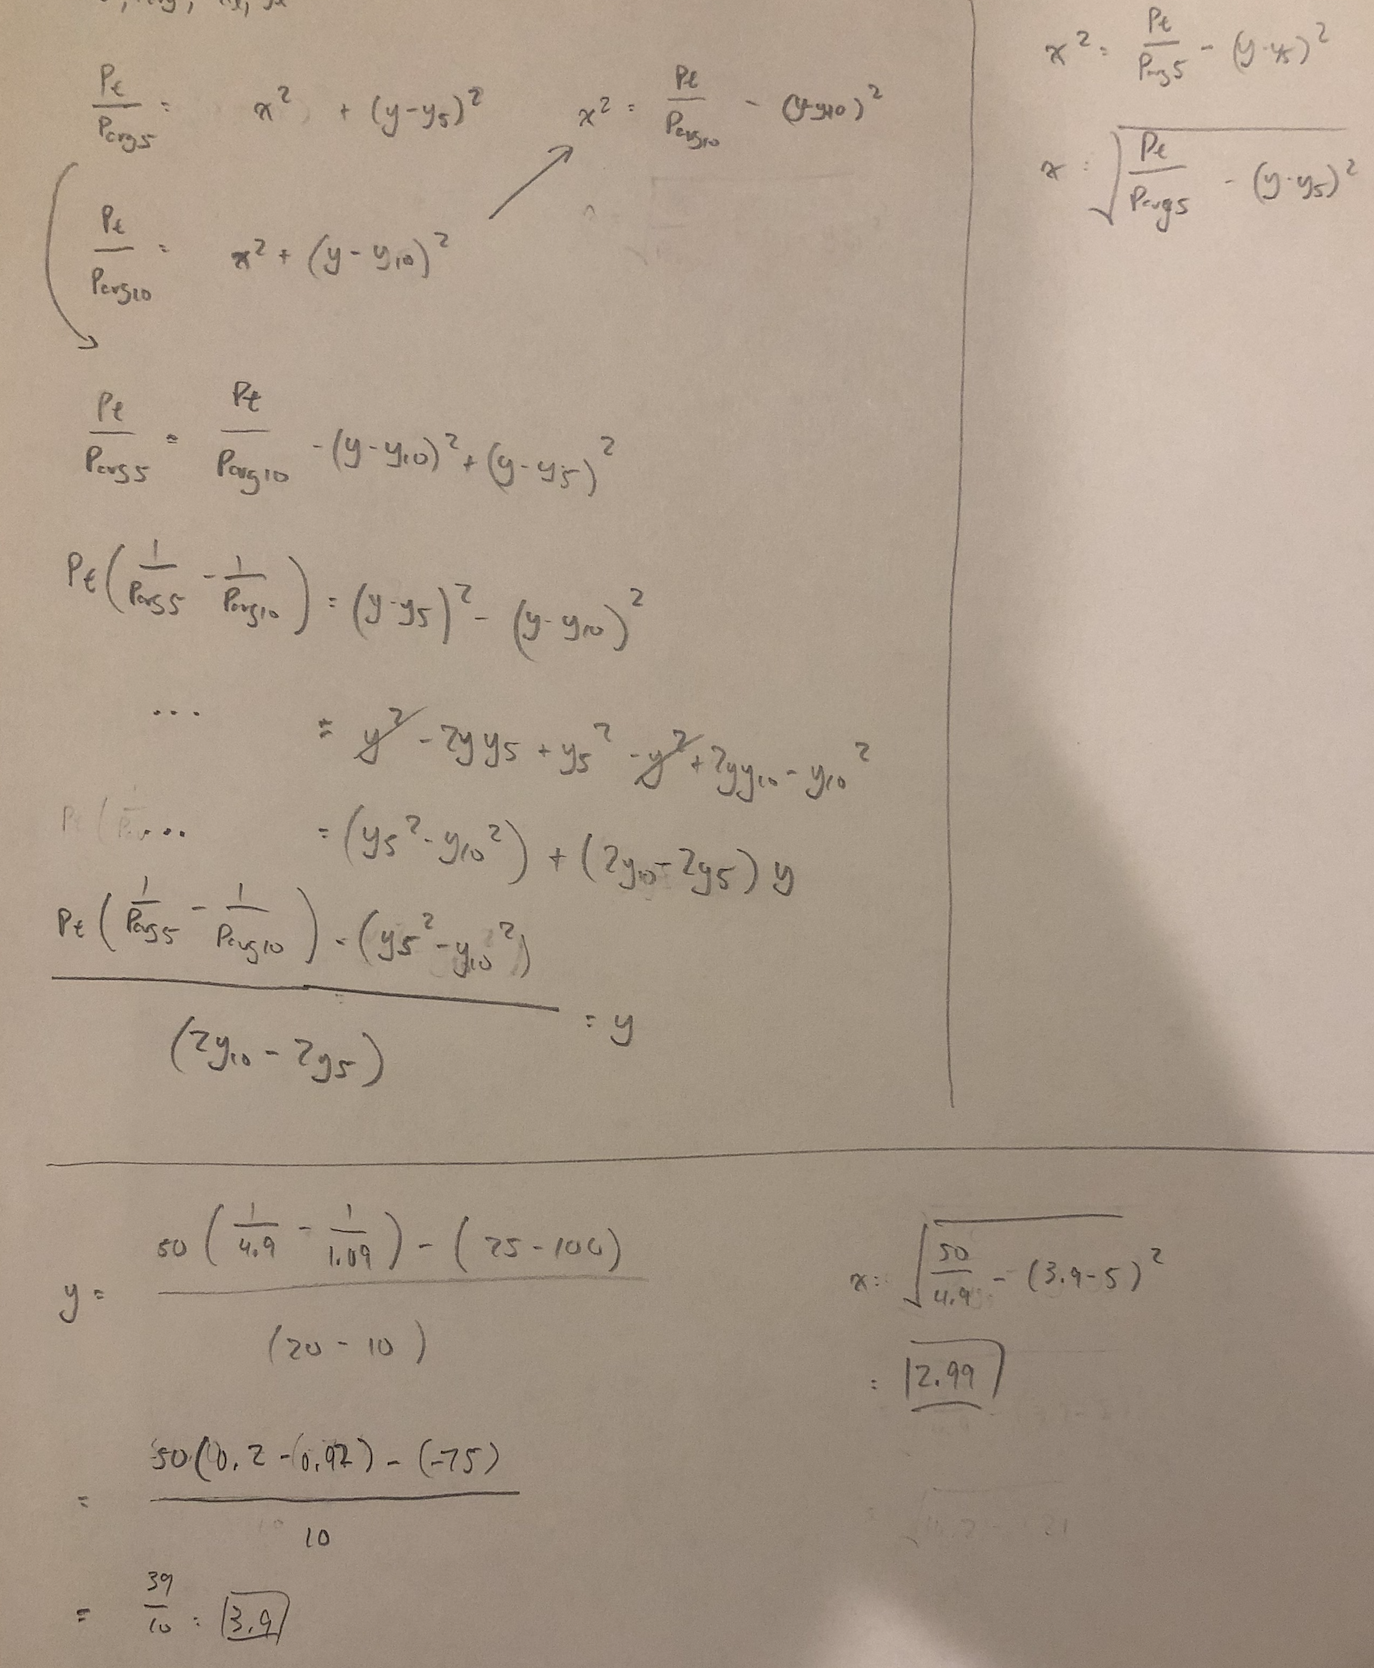 Pt/Pavg5 = x² + (y-y5)²
x² = Pt/Pavg10 - (y-y10)²
Pt/Pavg10 = x² + (y-y10)²
Pt/Pavg5 = Pt/Pavg10 - (y-y10)² + (y-y5)²
Pt(1/Pavg5 - 1/Pavg10) = (y-y5)² - (y-y10)²
... = y² - 2yy5 + y5² - y² + 2yy10 - y10²
... = (y5² - y10²) + (2y10 - 2y5) y
Pt(1/Pavg5 - 1/Pavg10) - (y5² - y10²)
(2y10 - 2y5)
= y
x² = Pt/Pavg5 - (y-y5)²
x = √(Pt/Pavg5 - (y-y5)²)
y = (50(1/4.9 - 1/1.09) - (25-100)) / (20-10)
= (50(0.2 - 0.92) - (-75)) / 10
= 39/10 = 3.9
x = √(50/4.9 - (3.9-5)²)
= 2.99